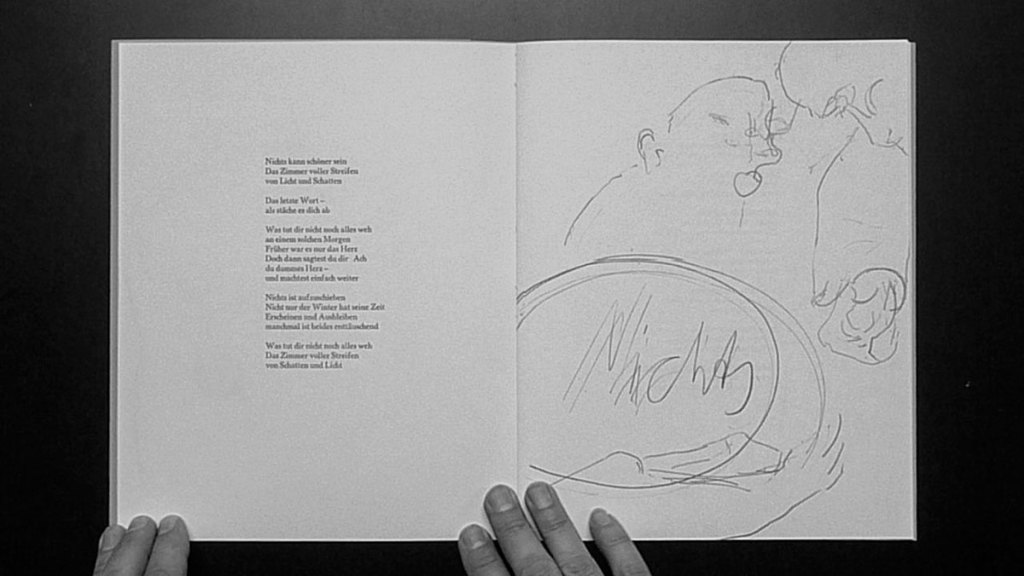 Nichts kann schöner sein
Das Zimmer voller Streifen
von Licht und Schatten
Das letzte Wort –
als stäche es dich ab
Was tut dir nicht noch alles weh
an einem solchen Morgen
Früher war es nur das Herz
Doch dann sagtest du dir Ach
du dummes Herz –
und machtest einfach weiter
Nichts ist aufzuschieben
Nicht nur der Winter hat seine Zeit
Erscheinen und Ausbleiben
manchmal ist beides enttäuschend
Was tut dir nicht noch alles weh
Das Zimmer voller Streifen
von Schatten und Licht
Nichts